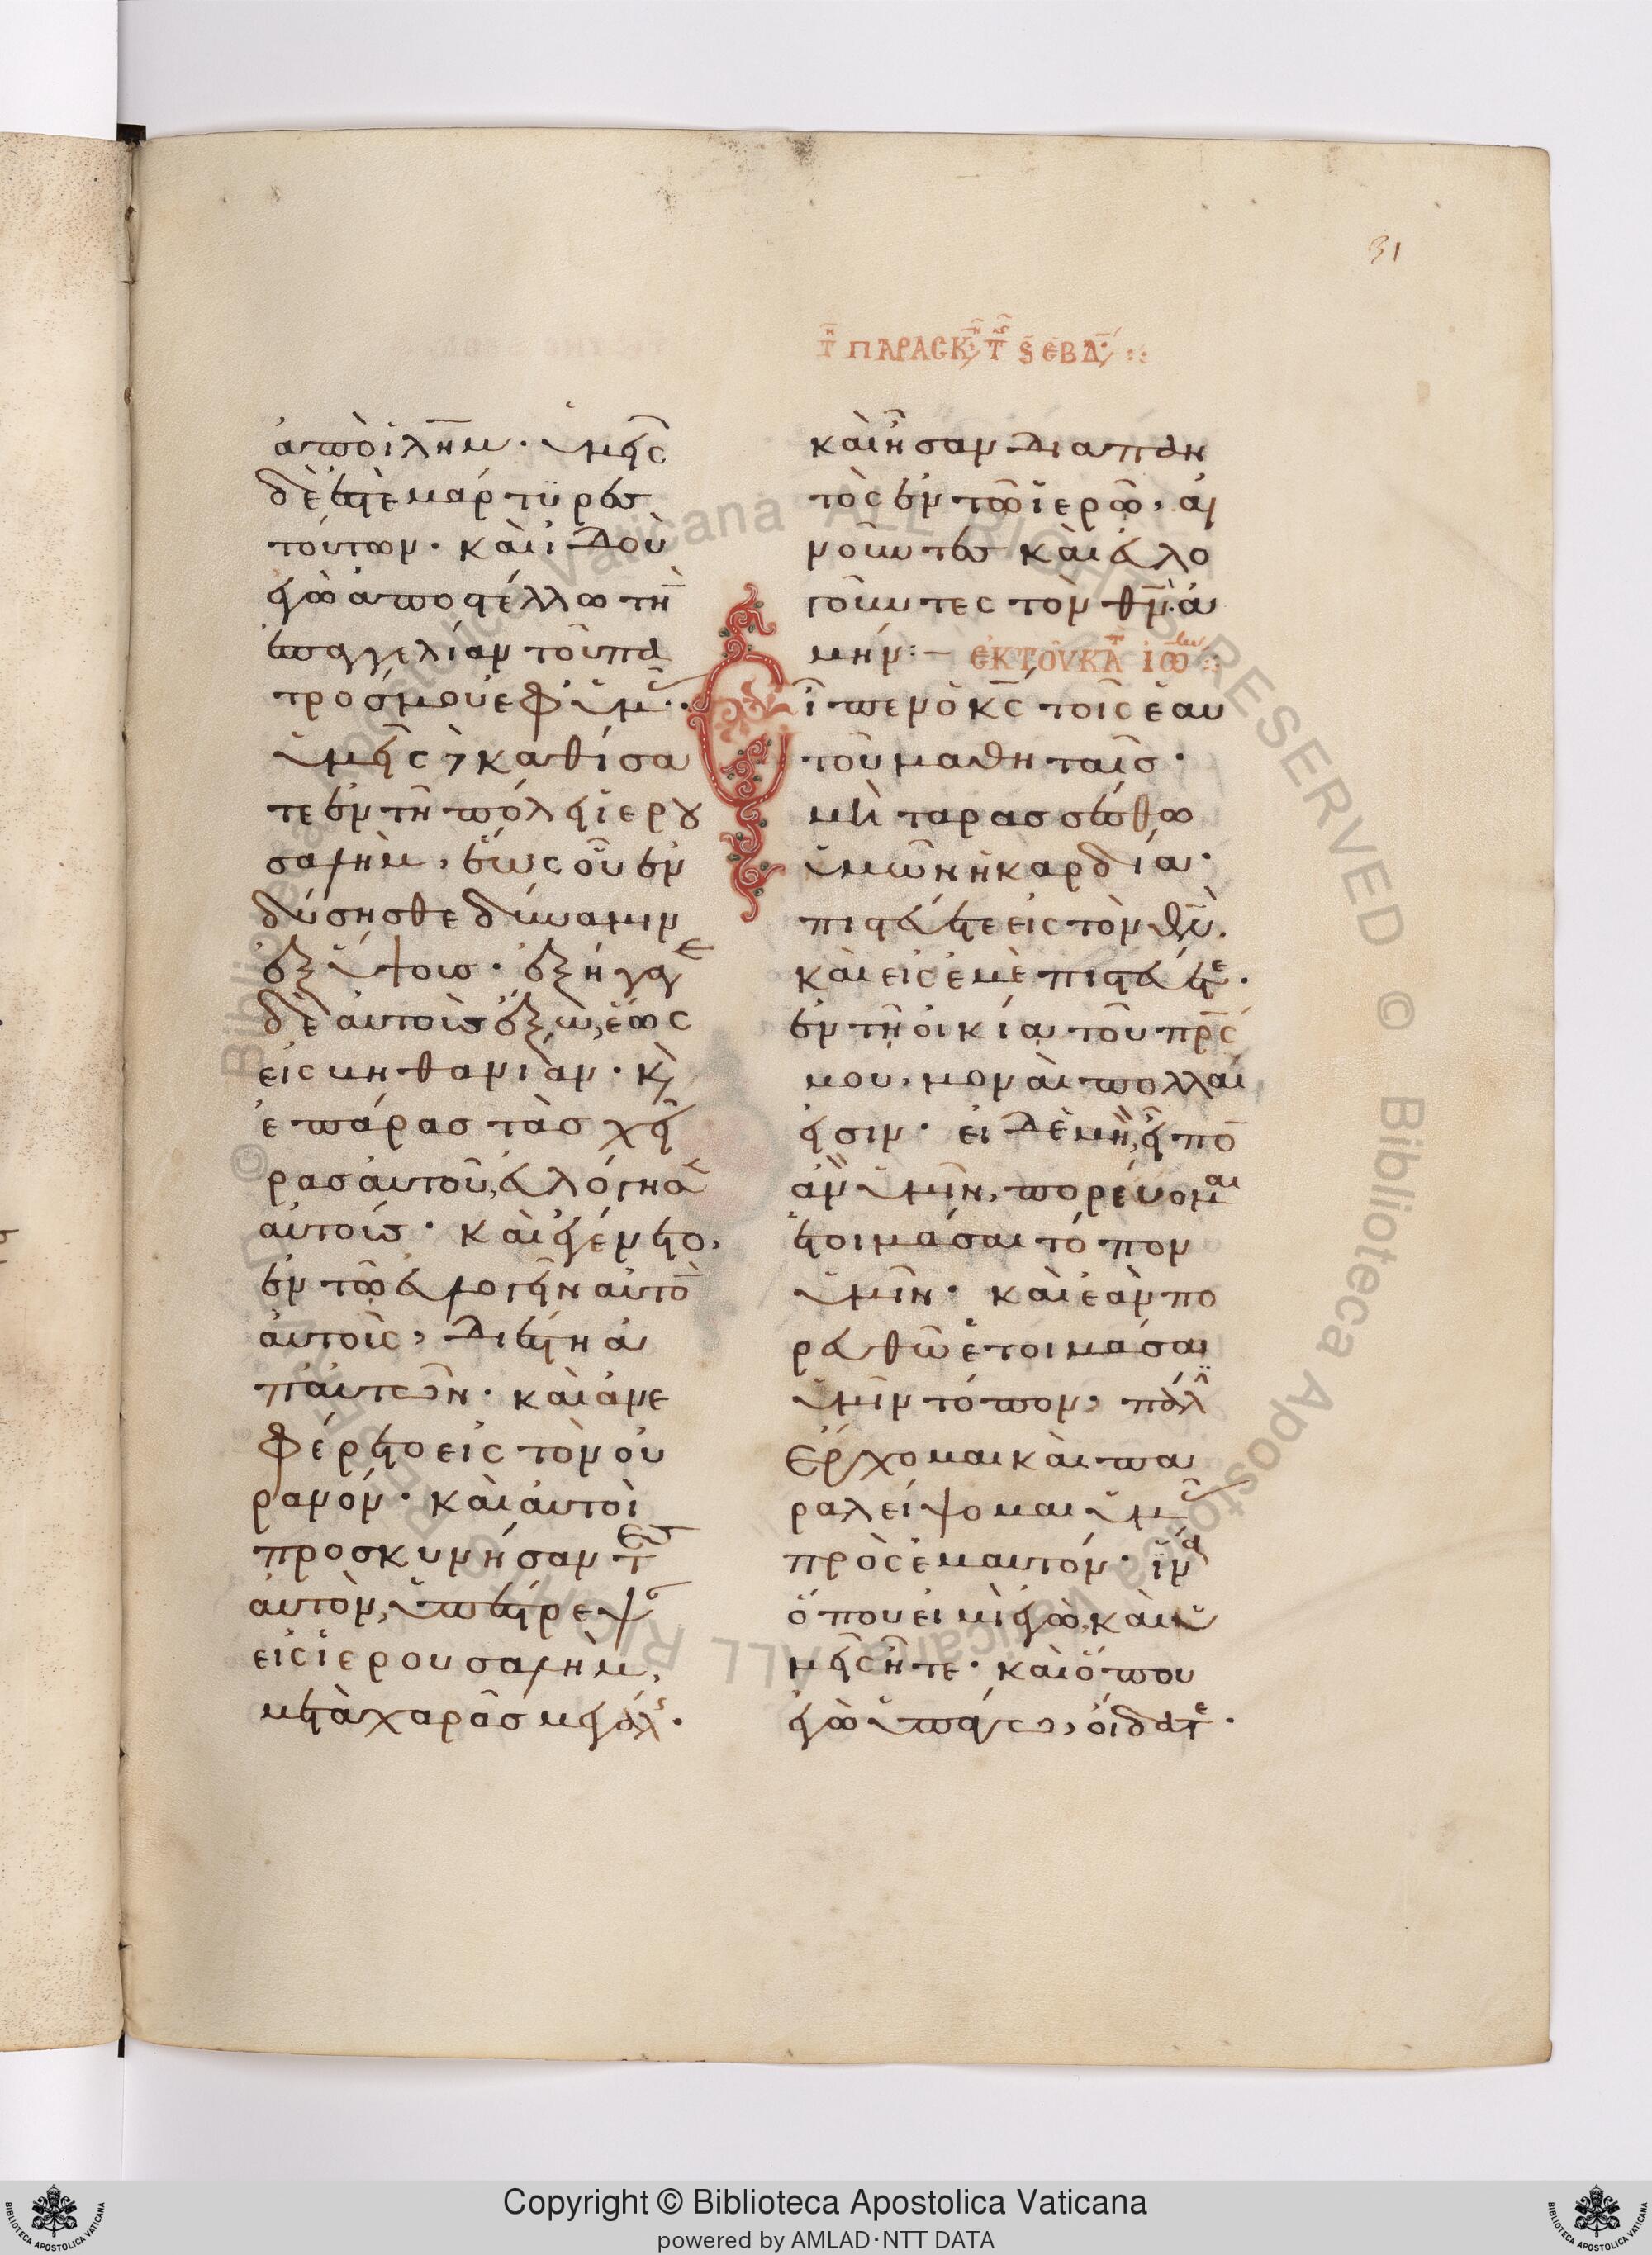 31
τῇ ΠΑΡΑΣΚ, τ ς ΕΒΔ,
ἀπὸ ἱλῆμ· ὑμεῖς
δὲ ἐστὲ μάρτϋρες
τούτων· καὶ ἰδοὺ
ἐγὼ ἀποστέλλω τὴν
ἐπαγγελίαν τοῦ πα
τρόσ μου ἐφ ὑμ·
ὑμεῖς δὲ καθίσα
τε ἐν τῇ πόλει ἱερου
σαλὴμ, ἕως οὗ ἐν
δύσησθε δύναμιν
ἐξ ὕψους· ἐξήγαγε
δὲ αὐτοὺσ ἔξω, ἕως
εἰς μηθανίὰν· κ
ἐπάρασ τὰσ χεῖ
ρασ ἀυτοῦ, ἐυλόγησ
αὐτούσ· καὶ ἐγένετο,
ἐν τῶ ἐυλογεῖν αὐτὸ
ἀυτοὺς, διέστη ἀ
π ἀυτῶν· καὶ ἀνε
φέρετο εἰς τὸν οὐ
ρανόν· καὶ ἀυτοὶ
προσκυνήσαντες
αὐτὸν, ὑπέστρεψ
εἰς ἱερουσαλὴμ,
μετὰ χαρᾶσ μεγάλ·
καὶ ἦσαν διαπαν
τὸς ἐν τῶ ἱερῶ, αἰ
νοῦντες καὶ ἐυλο
γοῦντες τὸν θν· ἀ
μήν:— ἐκ τοῦ κατ ἰω
Εἶπεν ὁ κς τοῖς ἑαυ
τοῦ μαθηταῖσ·
μὴ ταρασσέσθω
ὑμῶν ἡ καρδία·
πιστεύετε εἰς τὸν θν.
καὶ εἰς ἐμὲ πιστεύετε·
ἐν τῇ οἰκία τοῦ πρς
μου, μοναὶ πολλαί
εἰσιν· εἰ δὲ μὴ, εἶπο
ἂν ὑμῖν, πορεύομαι
ἑτοιμάσαι τόπον
ὑμῖν· καὶ ἐὰν πο
ρευθῶ ἑτοιμάσαι
ὑμῖν τόπον, πάλ
ἔρχομαι καὶ πα
ραλείψομαι ὑμ
πρὸς ἐμαυτόν· ἵνα
ὅπου εἰμὶ ἐγὼ, καὶ ὑ
μεῖς ἦτε· καὶ ὅπου
ἐγὼ ὑπάγω, οἴδατε·
© Biblioteca Apostolica Vaticana ALL RIGHTS RESERVED © Biblioteca Apostolica Vaticana ALL RIGHTS RESERVED
Copyright © Biblioteca Apostolica Vaticana
powered by AMLAD·NTT DATA
BIBLIOTECA APOSTOLICA VATICANA
BIBLIOTECA APOSTOLICA VATICANA